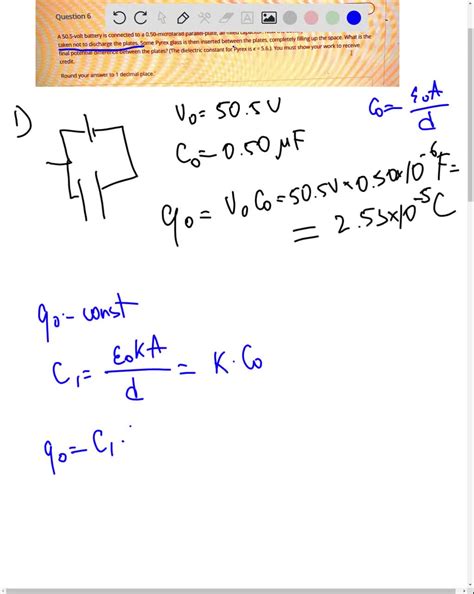 Question 6
A 50.5-volt battery is connected to a 0.50-microfarad parallel-plate, air-filled capacitor. Now the
taken not to discharge the plates. Some Pyrex glass is then inserted between the plates, completely filling up the space. What is the
final potential difference between the plates? (The dielectric constant for Pyrex is κ = 5.6.). You must show your work to receive
credit.
Round your answer to 1 decimal place.
1)
V₀ = 50.5 V
C₀ = 0.50 μF
C₀ = ε₀A/d
q₀ = V₀C₀ = 50.5V × 0.50×10⁻⁶F =
= 2.53×10⁻⁵ C
q₀ - const
C₁ = ε₀KA/d = K · C₀
q₀ = C₁ ·